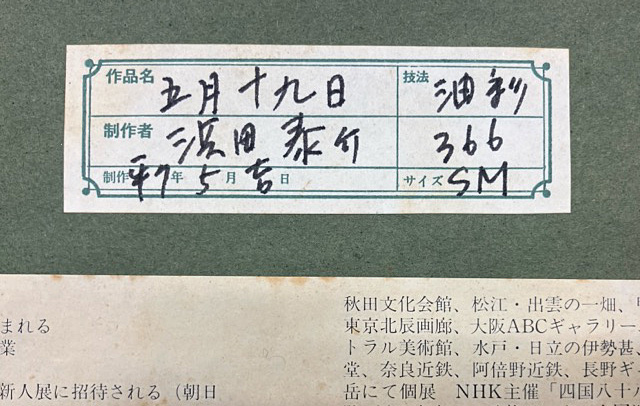 作品名 五月十九日 技法 油彩
制作者 濱田泰介 366
制作 平7年 5月 吉日 サイズ SM
まれる
業
新人展に招待される（朝日
秋田文化会館、松江・出雲の一畑、
東京北辰画廊、大阪ABCギャラリー
トラル美術館、水戸・日立の伊勢甚、
堂、奈良近鉄、阿倍野近鉄、長野ギ
岳にて個展 NHK主催「四国八十八